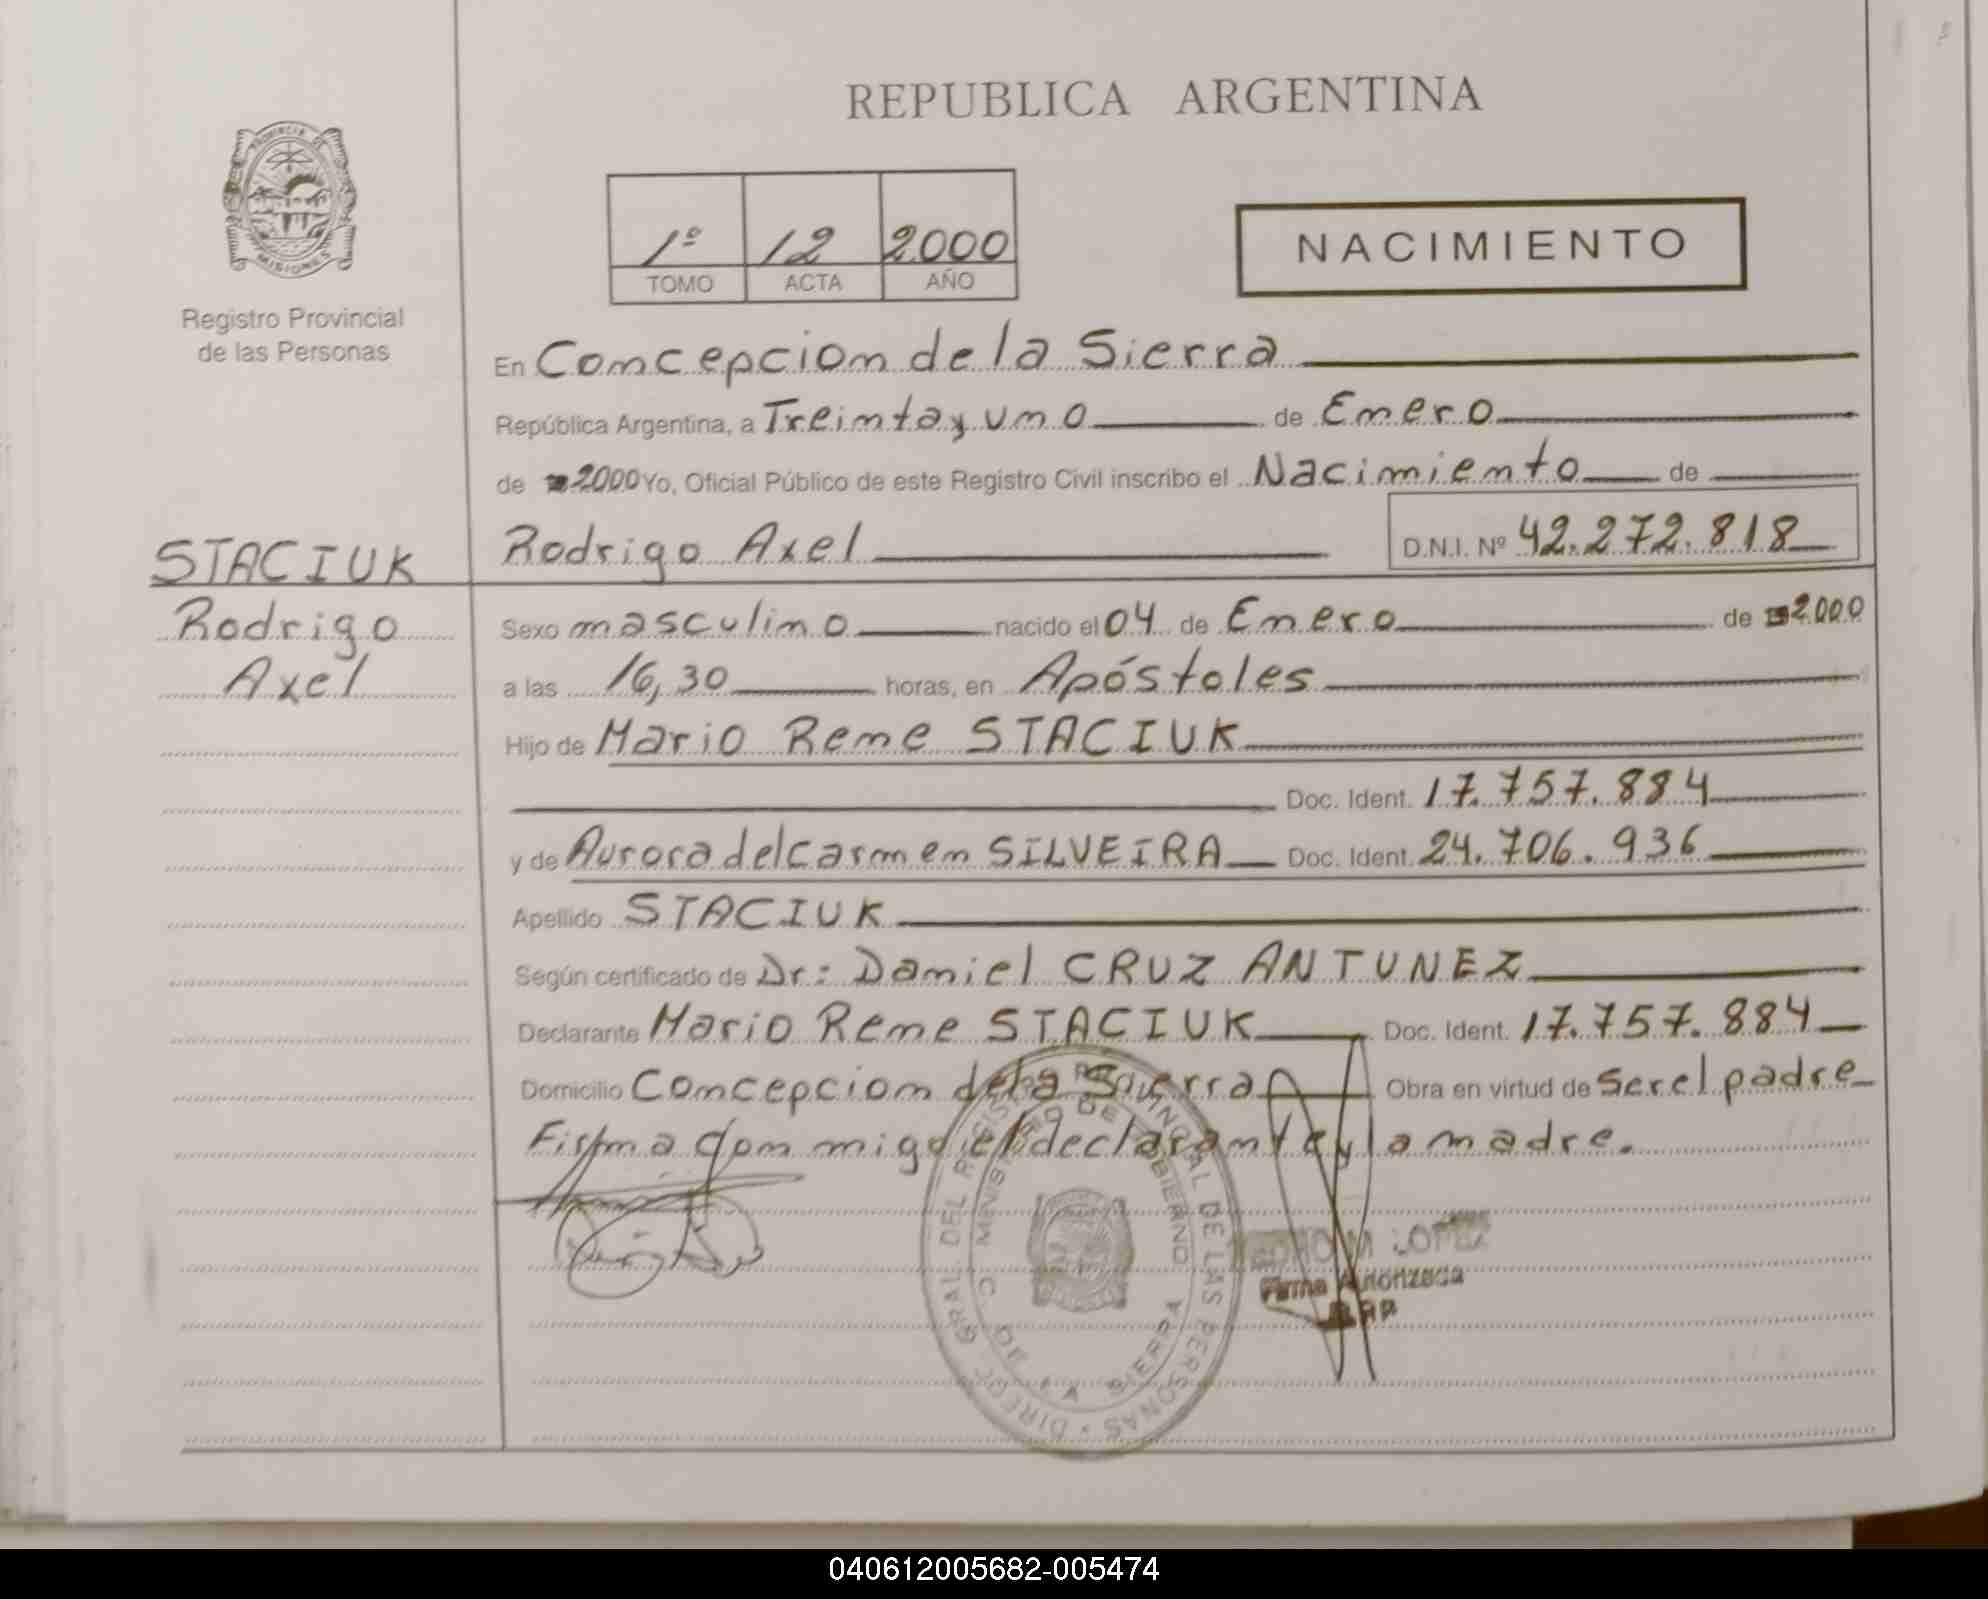 REPUBLICA ARGENTINA
PROVINCIA DE
MISIONES
Registro Provincial
de las Personas
1º 12 2000
TOMO ACTA AÑO
NACIMIENTO
En Concepcion de la Sierra
República Argentina, a Treinta y uno de Enero
de 2000 Yo, Oficial Público de este Registro Civil inscribo el Nacimiento de
STACIUK Rodrigo Axel D.N.I. Nº 42.272.818
Rodrigo
Axel
Sexo masculino nacido el 04 de Enero de 2000
a las 16,30 horas, en Apóstoles
Hijo de Mario Rene STACIUK
Doc. Ident. 17.757.884
y de Aurora del carmen SILVEIRA Doc. Ident. 24.706.936
Apellido STACIUK
Según certificado de Dr: Daniel CRUZ ANTUNEZ
Declarante Mario Rene STACIUK Doc. Ident. 17.757.884
Domicilio Concepcion de la Sierra Obra en virtud de ser el padre
Firma con migo el declarante y la madre.
DIREC. GRAL. DEL REGISTRO PROVINCIAL DE LAS PERSONAS
MINISTERIO DE GOBIERNO
C. DE LA SIERRA
M LOPEZ
Firma Autorizada
040612005682-005474